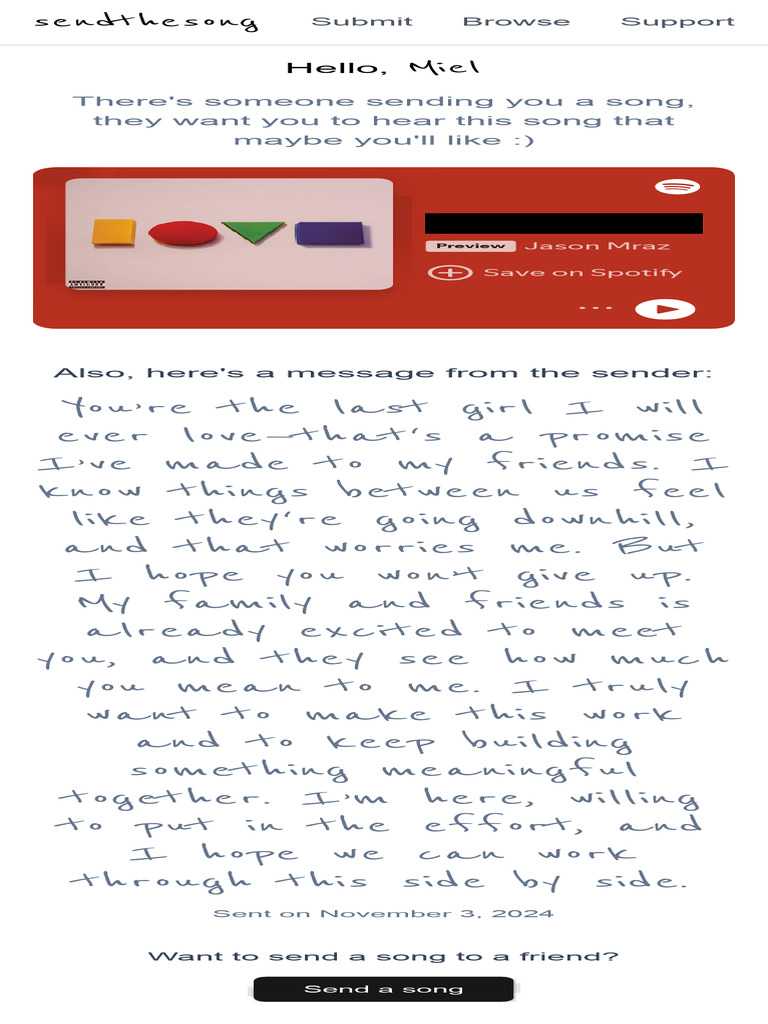 sendthesong Submit Browse Support
Hello, Miel
There's someone sending you a song,
they want you to hear this song that
maybe you'll like :)
Preview Jason Mraz
Save on Spotify
Also, here's a message from the sender:
You're the last girl I will
ever love—that's a promise
I've made to my friends. I
know things between us feel
like they're going downhill,
and that worries me. But
I hope you won't give up.
My family and friends is
already excited to meet
you, and they see how much
you mean to me. I truly
want to make this work
and to keep building
something meaningful
together. I'm here, willing
to put in the effort, and
I hope we can work
through this side by side.
Sent on November 3, 2024
Want to send a song to a friend?
Send a song